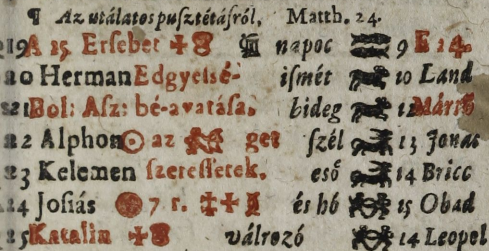 ¶ Az utálatos pusztétásról, Matth. 24.
19 A 25. Ersebet napoc 9 E 24.
20 Herman Edgyessé- ismét 10 Land
21 Bol: Asz: bé-avatása, bideg 12
22 Alphon az get szél 13 Jonas
23 Kelemen szeressetek, eső 14 Bricc
24 Josiás 7 r. és hó 15 Obad
25 Katalin válrozó 14 Leopol